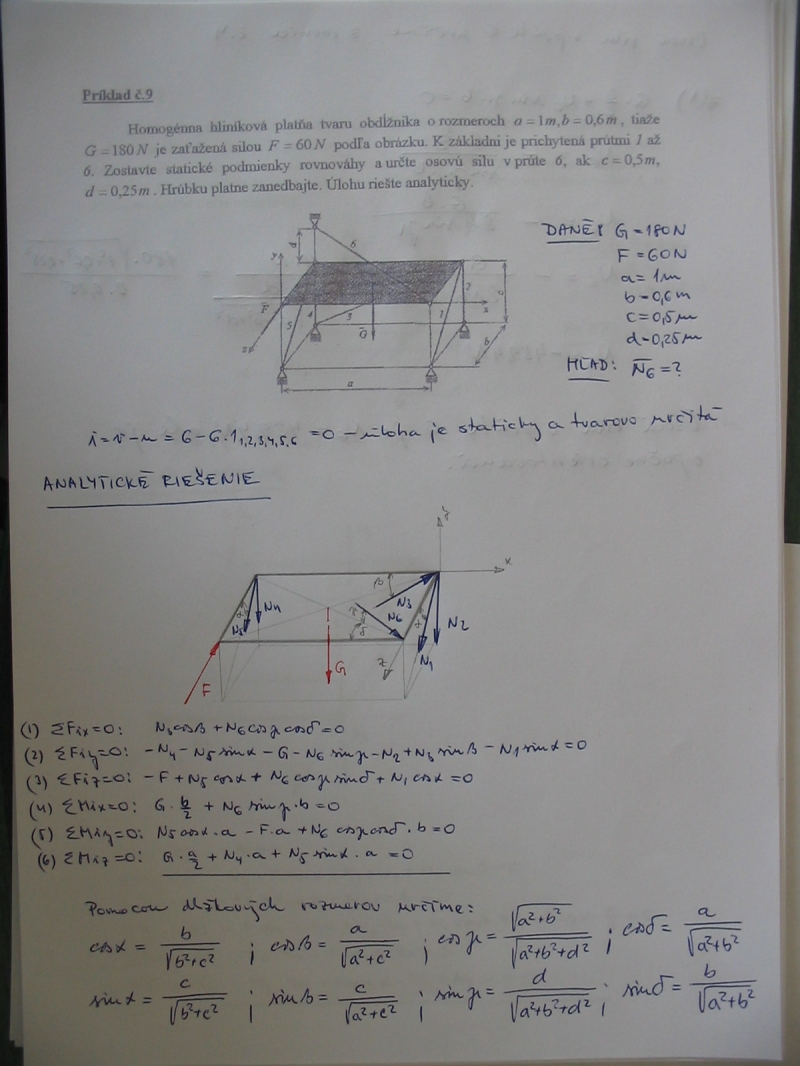 Príklad č.9
Homogénna hliníková platňa tvaru obdĺžnika o rozmeroch a = 1m, b = 0,6m, tiaže
G = 180 N je zaťažená silou F = 60 N podľa obrázku. K základni je prichytená prútmi 1 až
6. Zostavte statické podmienky rovnováhy a určte osovú silu v prúte 6, ak c = 0,5m,
d = 0,25m. Hrúbku platne zanedbajte. Úlohu riešte analyticky.
DANÉ: G = 180N
F = 60N
a = 1m
b = 0,6m
c = 0,5m
d = 0,25m
HĽAD: N̅6 = ?
d
y
6
F̅
x
z
5
4
3
G̅
1
2
c
b
a
i = v - u = 6 - 6.1 1,2,3,4,5,6 = 0 - úloha je staticky a tvarovo určitá
ANALYTICKÉ RIEŠENIE
y
x
z
β
N3
N6
N4
N5
α
γ
δ
α
N2
N1
G
F
(1) ΣFix=0: N3cosβ + N6cosγ cosδ = 0
(2) ΣFiy=0: -N4 - N5 sinα - G - N6 sinγ - N2 + N3 sinβ - N1 sinα = 0
(3) ΣFiz=0: -F + N5 cosα + N6 cosγ sinδ + N1 cosα = 0
(4) ΣMix=0: G · b/2 + N6 sinγ · b = 0
(5) ΣMiy=0: N5 cosα · a - F · a + N6 cosγ cosδ · b = 0
(6) ΣMiz=0: G · a/2 + N4 · a + N5 sinα · a = 0
Pomocou dĺžkových rozmerov určíme:
cosα = b/√(b²+c²) ; cosβ = a/√(a²+c²) ; cosγ = √(a²+b²)/√(a²+b²+d²) ; cosδ = a/√(a²+b²)
sinα = c/√(b²+c²) ; sinβ = c/√(a²+c²) ; sinγ = d/√(a²+b²+d²) ; sinδ = b/√(a²+b²)